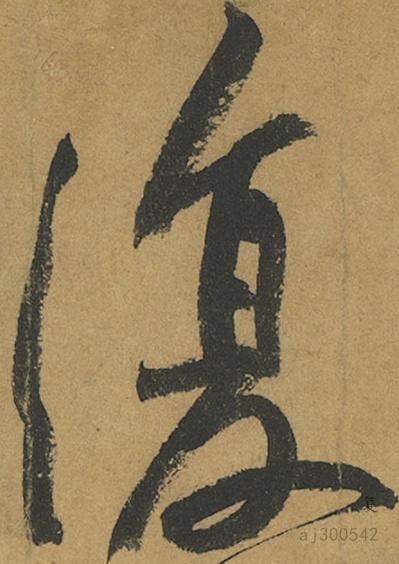 復
复
aj300542